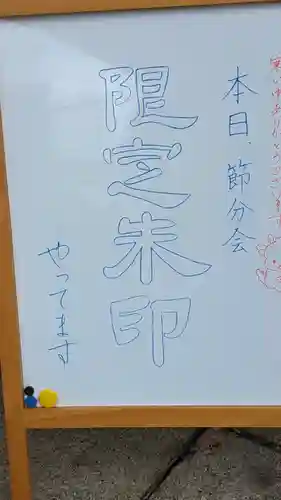 本日、節分会
限定朱印
やってます